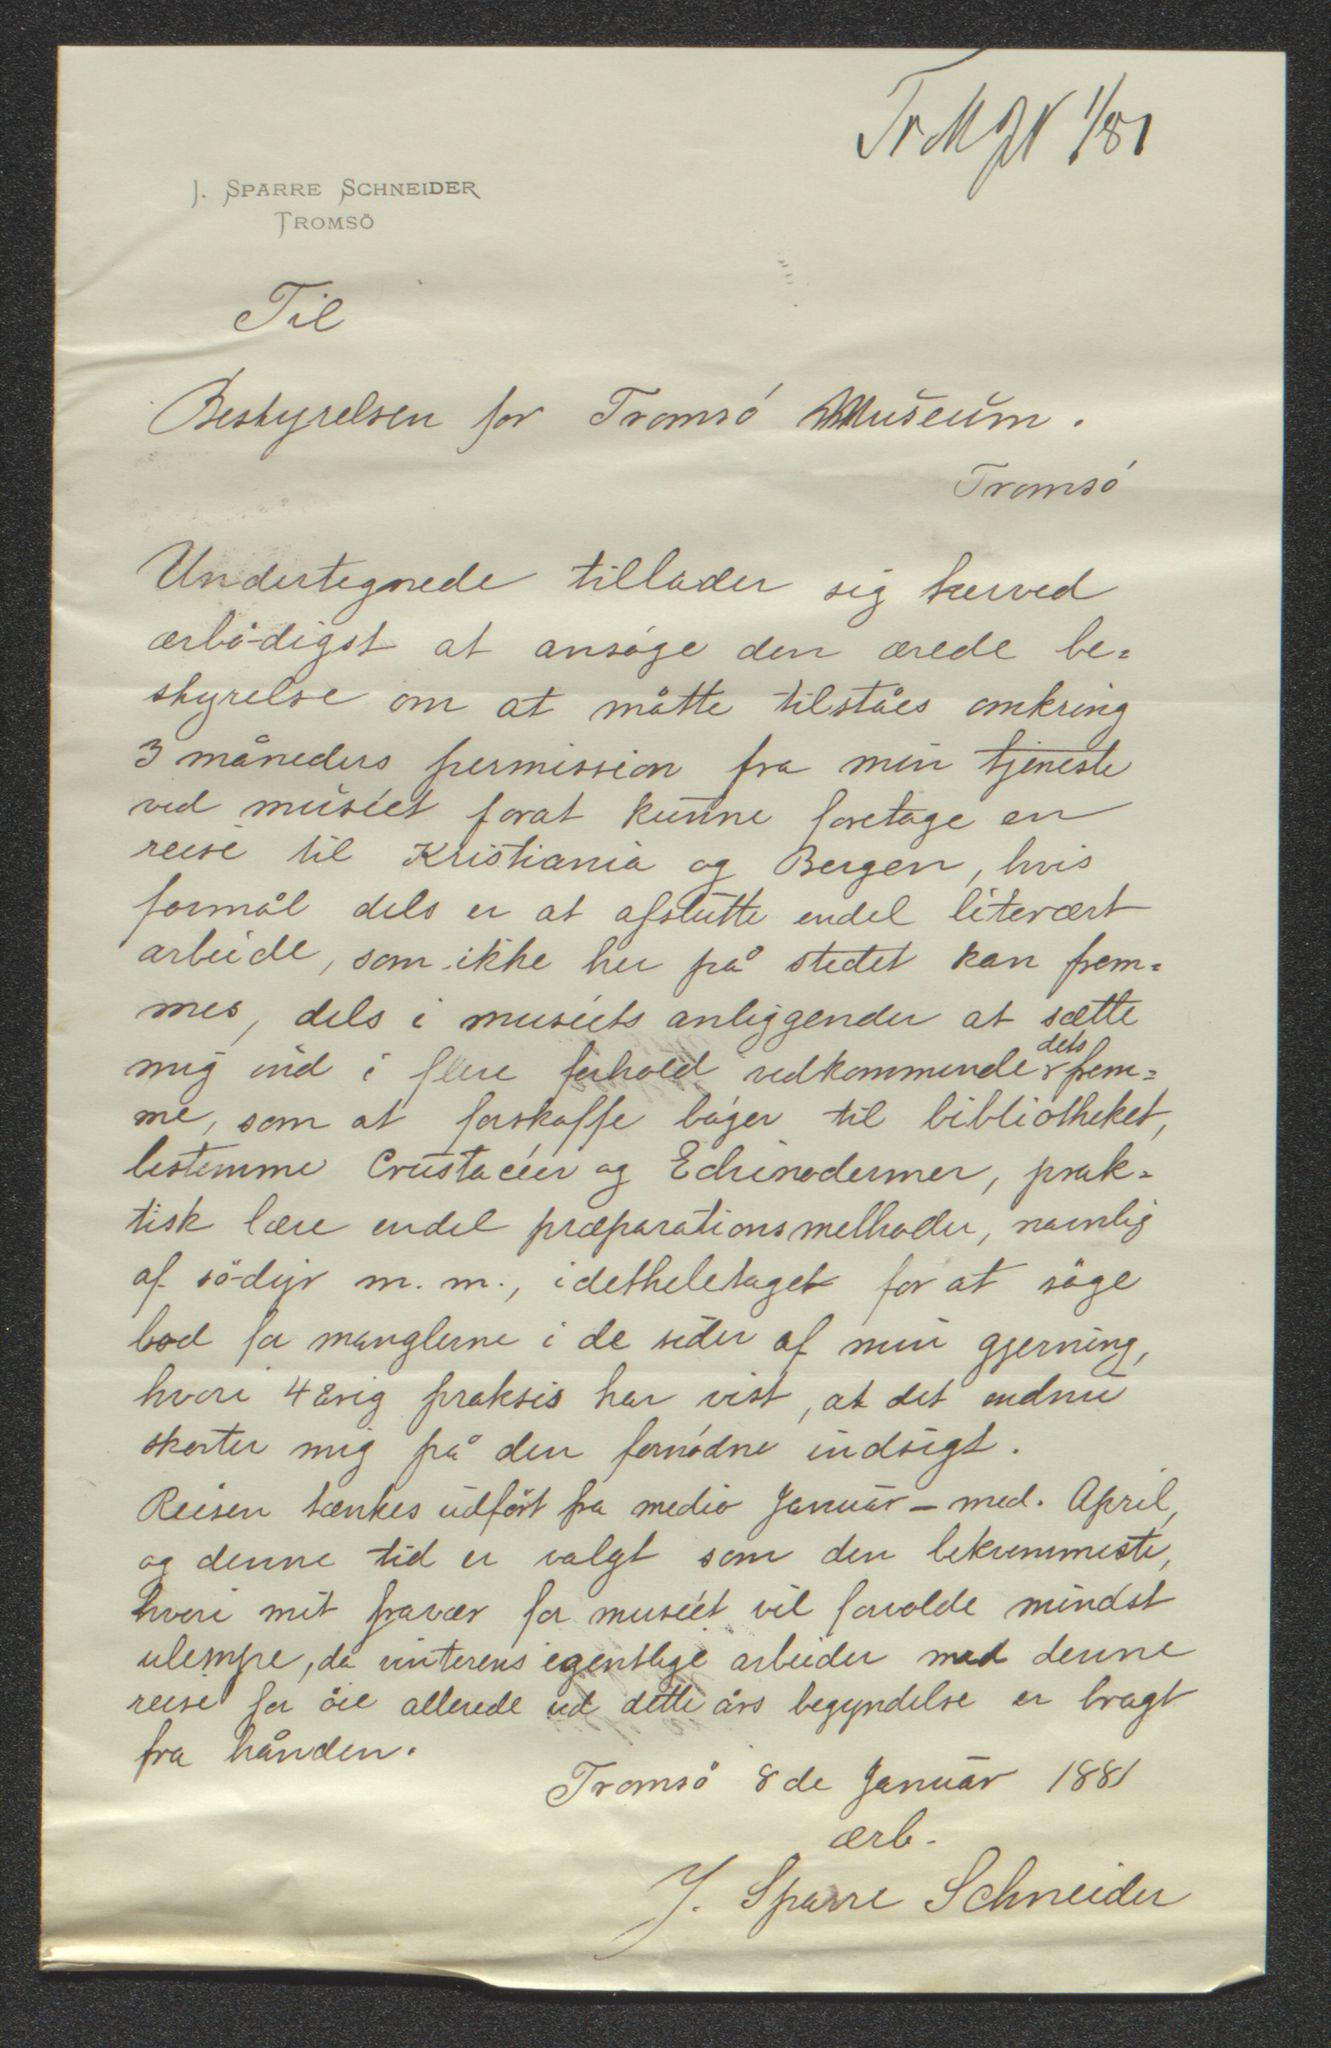 Tr M JN 1/81
J. SPARRE SCHNEIDER
TROMSÖ
Til
Bestyrelsen for Tromsö Museum.
Tromsö
Undertegnede tillader sig herved
ærbödigst at ansöge den ærede be=
styrelse om at måtte tilståes omkring
3 måneders permission fra min tjeneste
ved muséet forat kunne foretage en
reise til Kristiania og Bergen, hvis
formål dels er at afslutte endel literært
arbeide, som ikke her på stedet kan frem=
mes, dels i muséets anliggender at sætte
mig ind i flere forhold vedkommende dets frem=
me, som at forskaffe böger til bibliotheket,
bestemme Crustacéer og Echinodermer, prak=
tisk lære endel præparationsmethoder, navnlig
af södyr m. m., idetheletaget for at söge
bod for manglerne i de sider af min gjerning,
hvori 4 årig praksis har vist, at det endnu
skorter mig på den fornödne indsigt.
Reisen tænkes udfört fra medio Januar – med. April,
og denne tid er valgt som den bekvemmeste,
hvori mit fravær for muséet vil forvolde mindst
ulempe, da vinterens egentlige arbeider med denne
reise for öie allerede ved dette års begyndelse er bragt
fra hånden.
Tromsö 8de Januar 1881
ærb.
J. Sparre Schneider